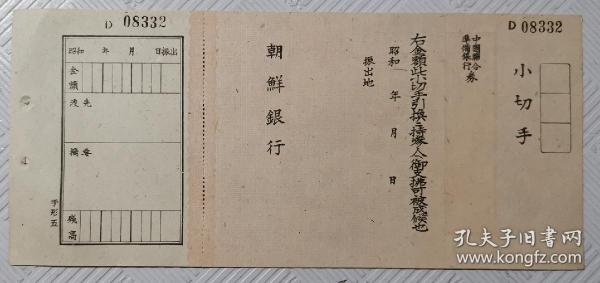 D 08332
小切手
中國聯合
準備銀行
券
右金額此小切手引換ニ持參人ヘ御支拂可被成候也
昭和　年　月　日
振出地
朝鮮銀行
D 08332
昭和　年　月　日振出
金額
渡先
摘要
殘高
手形五
孔夫子旧书网
www.kongfz.com